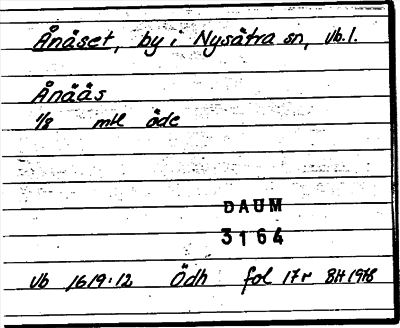 Ånäset, by i Nysätra sn, Vb.l.
Ånääs
1/8 mtl öde
DAUM
3164
Vb 1619:12 Ödh fol 17r BH 1978